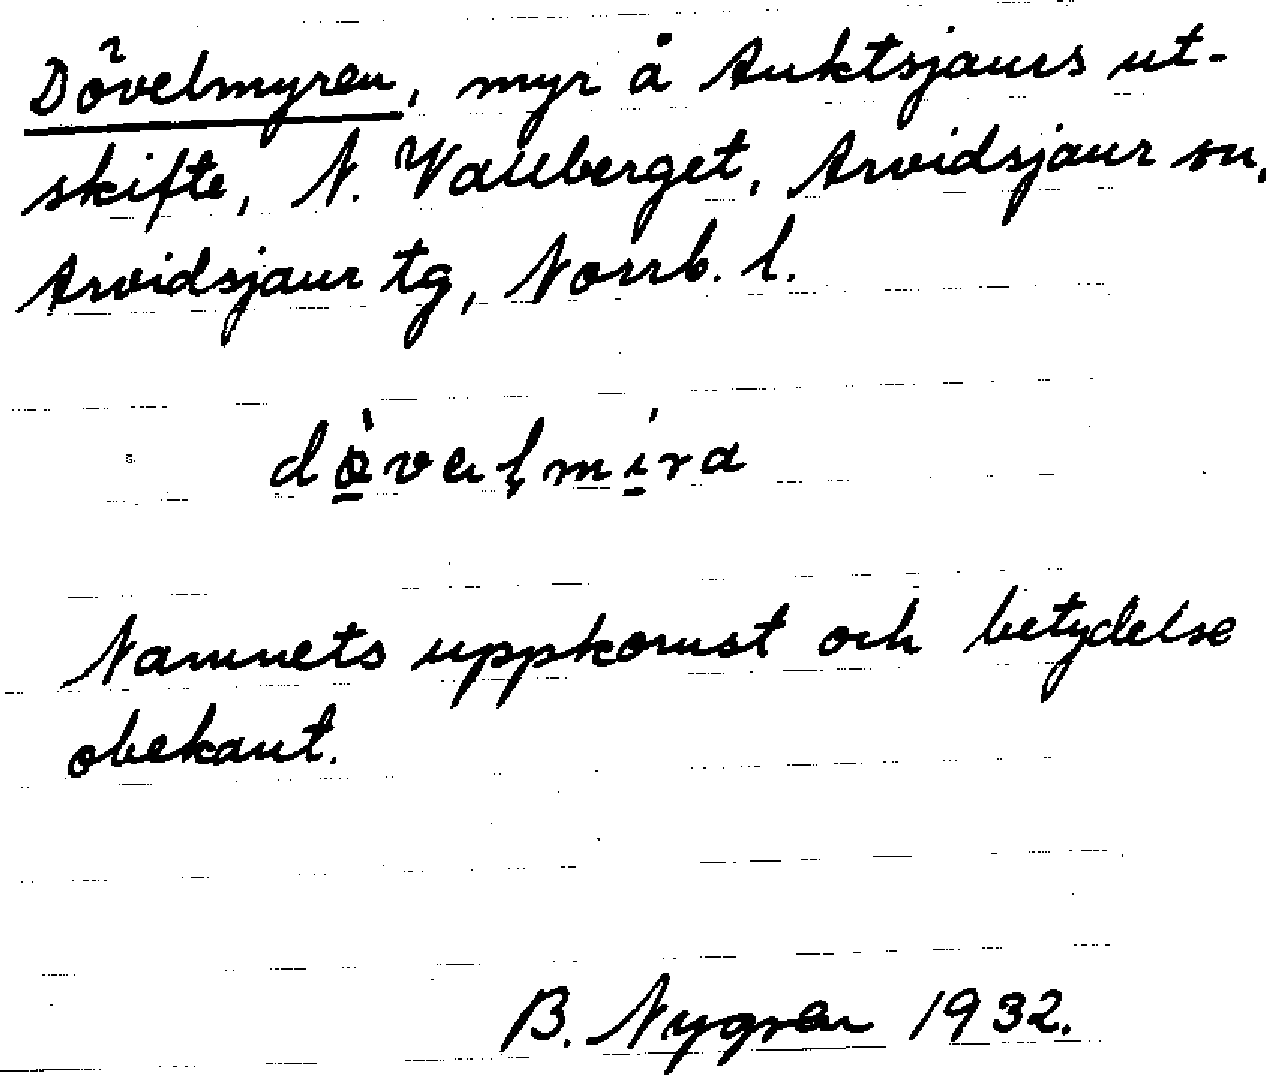 Dövelmyren, myr å Auktsjaurs ut-
skifte, N. Vallberget, Arvidsjaur sn,
Arvidsjaur tg, Norrb. l.
Namnets uppkomst och betydelse
obekant.
B. Nygren 1932.